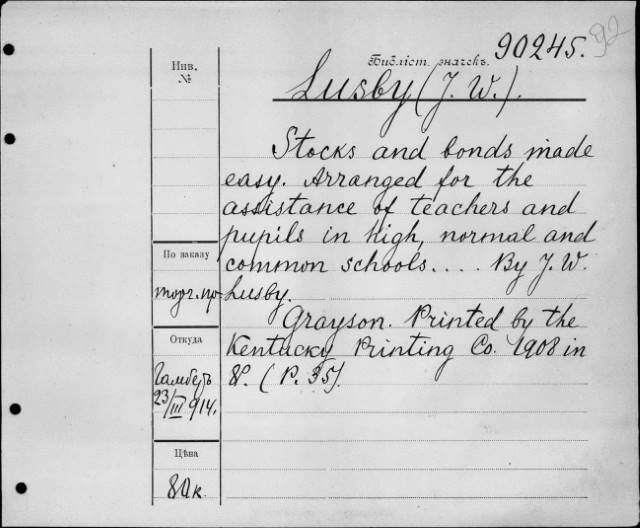 92
Библіот. значекъ. 90245.
Инв.
№
Lusby (J. W.).
Stocks and bonds made
easy. Arranged for the
assistance of teachers and
pupils in high, normal and
common schools.... By J. W.
Lusby.
Grayson. Printed by the
Kentucky Printing Co. 1908 in
8º. (P. 35).
По заказу
торг. пр
Откуда
23/III 914.
Цѣна
80 к.